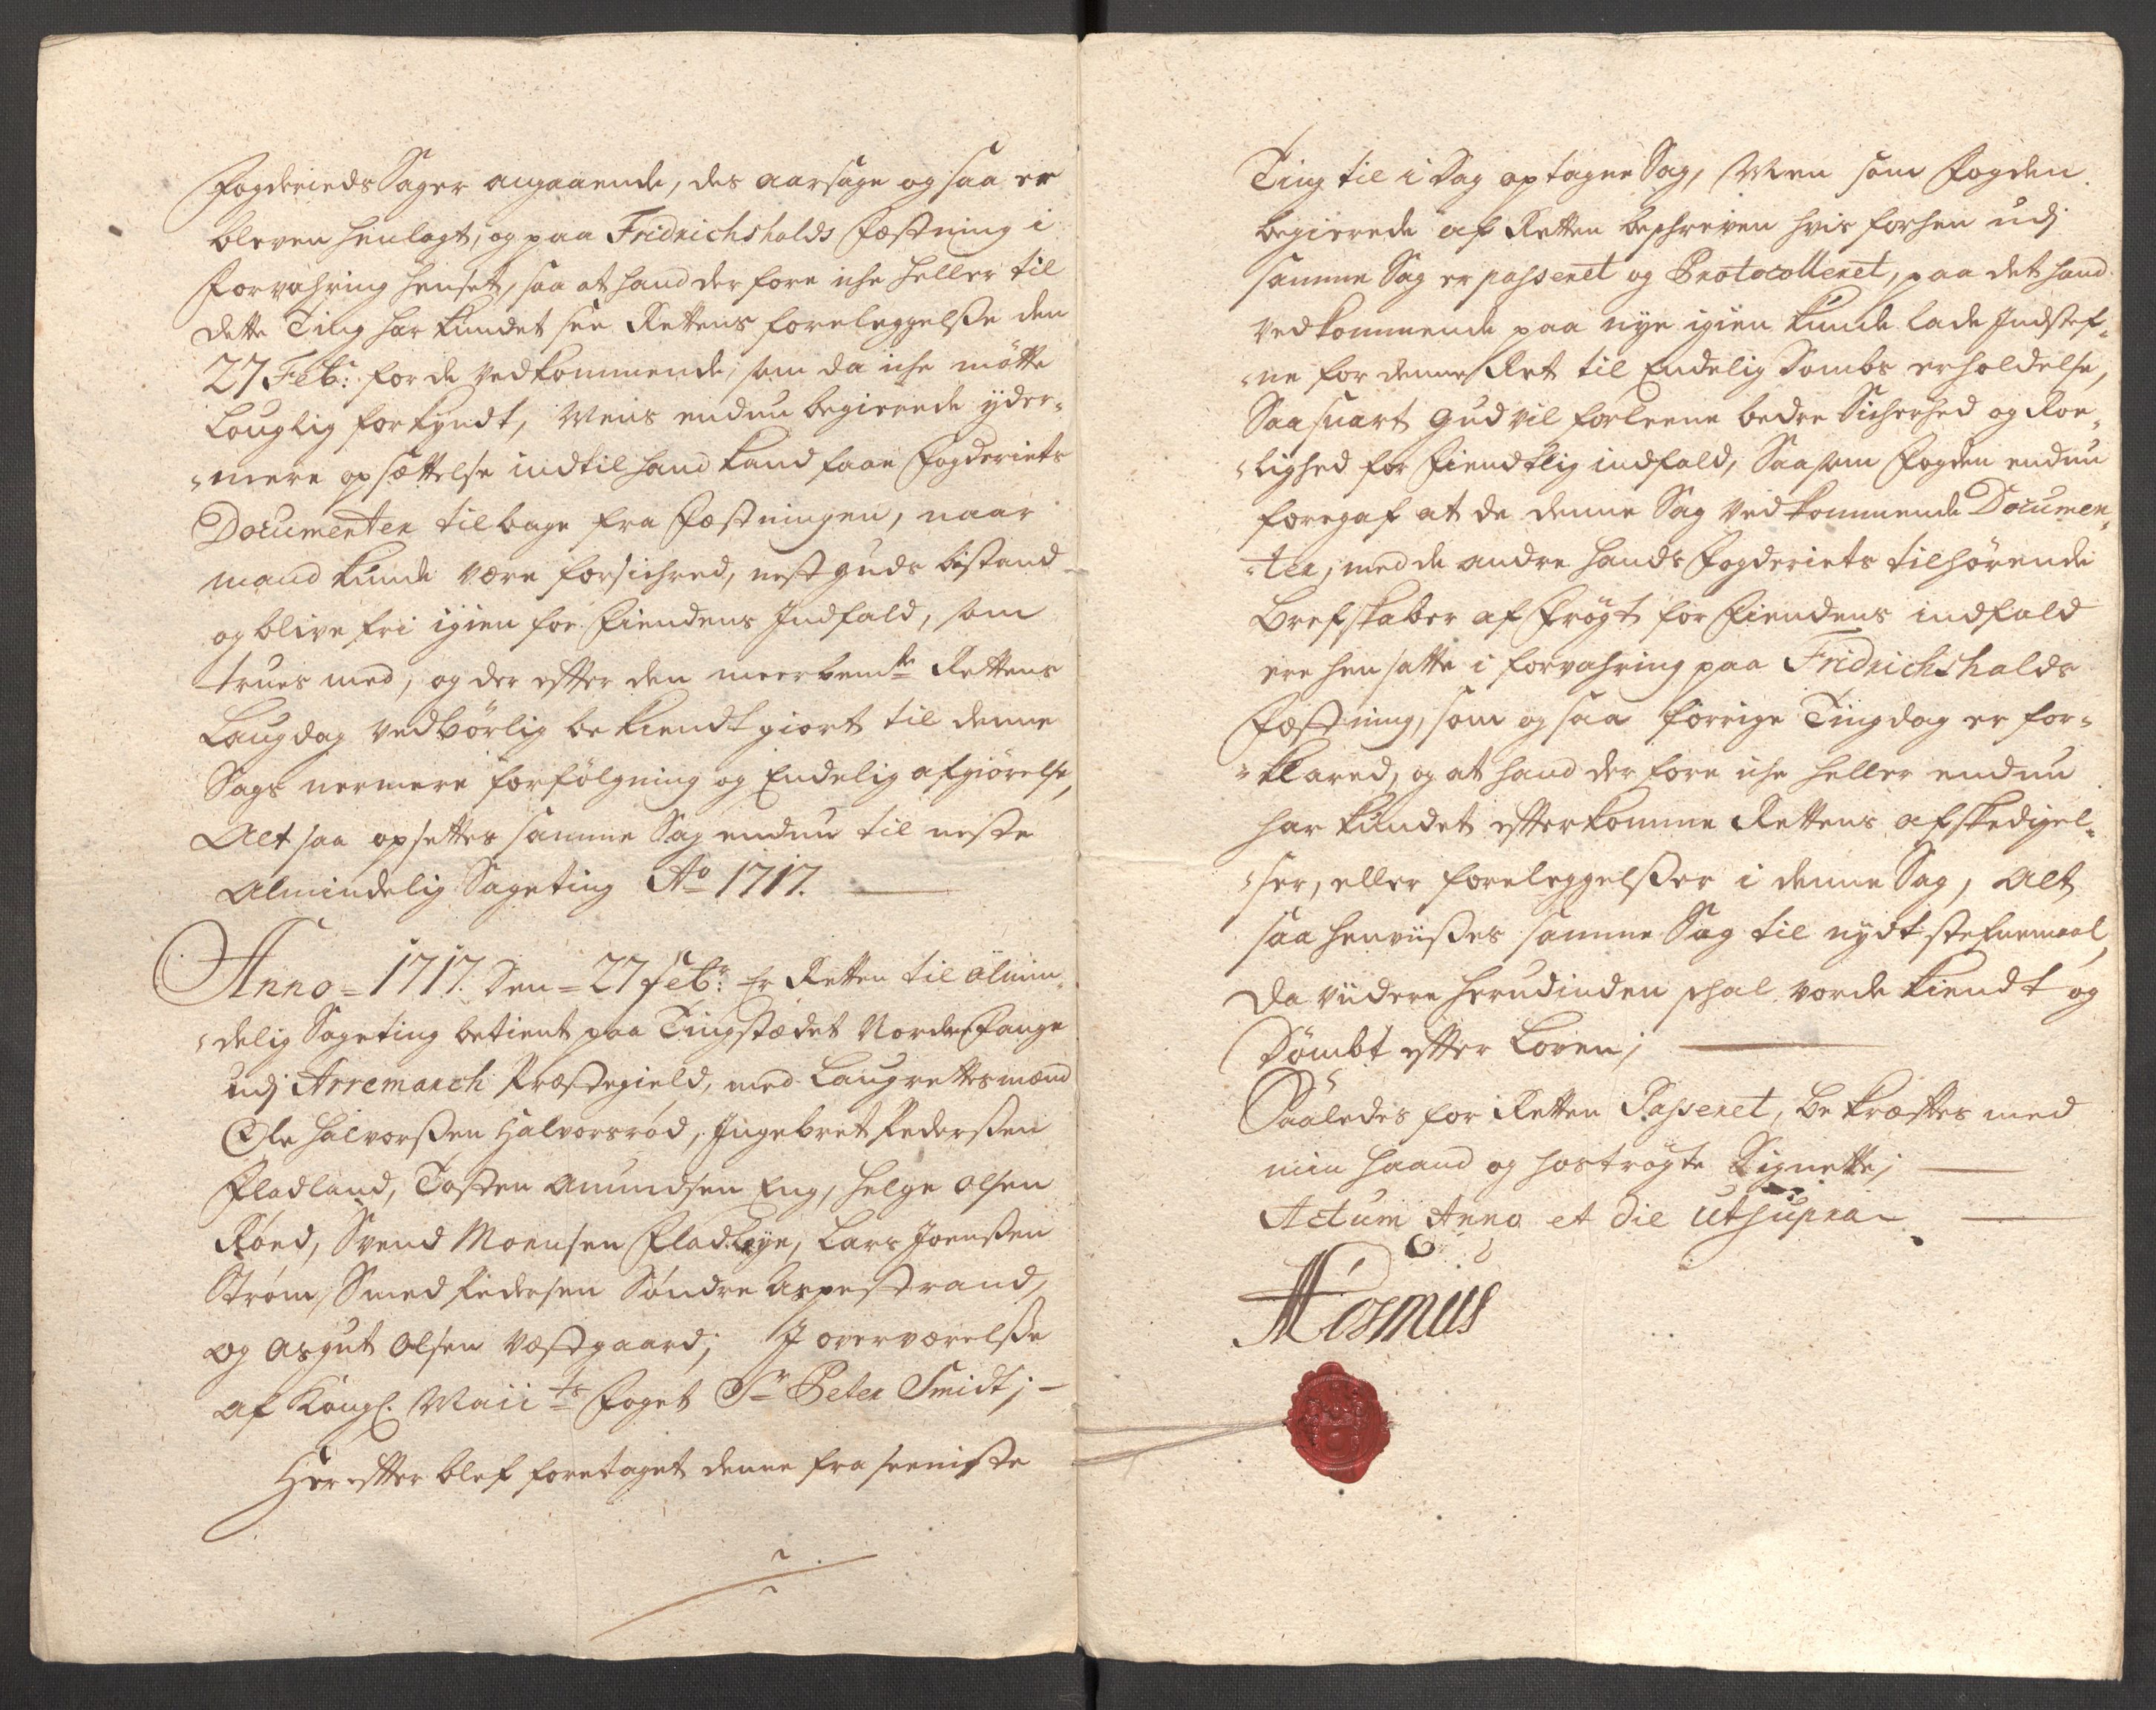 Fogderieds Sager angaaende, des aarsage og saa er
bleven henlagt, og paa Fridrichshalds Fæstning i
Forvahring hensat, saa at hand der fore iche heller til
dette Ting har kundet see Rettens foreleggelsse den
27 Feb: for de vedkommende, som da iche mötte
Louglig forkyndt, Mens endnu begierede yder-
-mere opsættelse indtil hand kand faae Fogderiets
Documenter tilbage fra Fæstningen, naar
mand kunde være forsichred, nest guds bistand
og blive fri igien for Fiendens Indfald, som
trues med, og der effter den meerbemte Rettens
Laugdag vedbörlig bekiendtgiort til denne
Sags nermere forfölgning og Endelig afgiörelse,
Alt saa opsettes samme Sag endnu til neste
Almindelig Sageting Ao 1717.
Anno = 1717. Den = 27 Febr: Er Retten til almin-
-delig Sageting betient paa Tingstædet Nordre Fange
udj Arremarch Præstegield, med Laugrettesmænd
Ole Halvorssen Halvorsröd, Ingebret Pederssen
Fladland, Tosten Amundsen Eng, Helge Olsen
Röed, Svend Monsen Fladbye, Lars Joenssen
Ström, Smed Pedersen Söndre Aspestrand,
og Asgut Olsen Væstgaard; I overværelsse
af Kongl. Maiits Foget Sr Peter Smidt; -
Her effter blef foretaget denne fra seeniste
Ting til i Dag optagne Sag, Men som Fogden
begierede af Retten beschreven hvis forhen udj
samme Sag er passeret og Protocolleret, paa det hand
vedkommende paa nye igien kunde lade Indstef-
-ne for denne Ret til Endelig Dombs erholdelse,
Saa snart Gud vil forleene bedre Sicherhed og Roe-
-lighed for Fiendtlig indfald, Saasom Fogden endnu
foregaf at de denne Sag vedkommende Documen-
-ter, med de andre hands Fogderiets tilhörende
Brefskaber af Frögt for Fiendens indfald
ere hensatte i forvahring paa Fridrichshalds
Fæstning, som og saa forrige Tingdag er for-
-klared, og at hand der fore iche heller endnu
har kundet effterkomme Rettens afskedigel-
-ser, eller foreleggelsser i denne Sag, Alt
saa henviisses samme Sag til nydt stefnemaal,
da viidere herudinden schal vorde kiendt og
Dömbt effter Loven;
Saaledes for Retten Passeret, bekræfftes med
min haand og hoströgte Signette;
Actum Anno et die utsupra
ARosmus